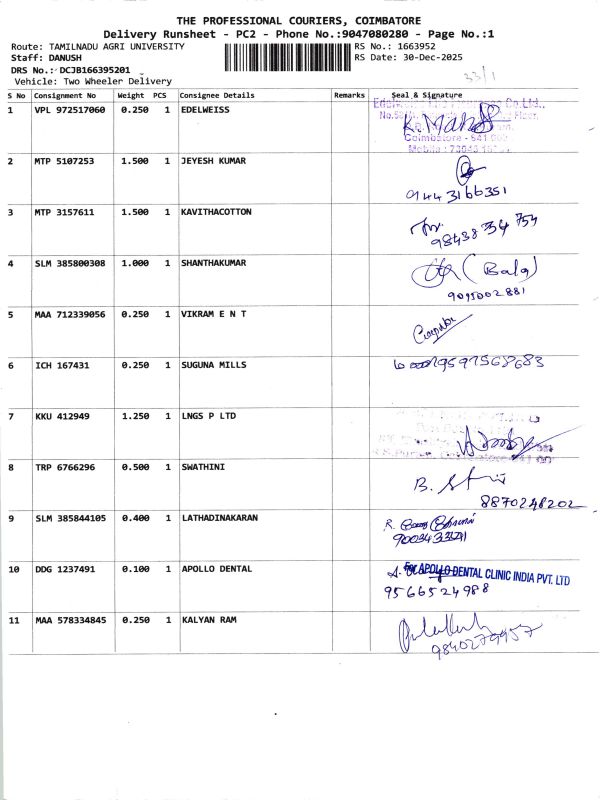 THE PROFESSIONAL COURIERS, COIMBATORE
Delivery Runsheet - PC2 - Phone No.:9047080280 - Page No.:1
Route: TAMILNADU AGRI UNIVERSITY RS No.: 1663952
Staff: DANUSH RS Date: 30-Dec-2025
DRS No.: DCJB166395201
Vehicle: Two Wheeler Delivery 33/1
S No Consignment No Weight PCS Consignee Details Remarks Seal & Signature
1 VPL 972517060 0.250 1 EDELWEISS
Coimbatore - 641
2 MTP 5107253 1.500 1 JEYESH KUMAR
91443166351
3 MTP 3157611 1.500 1 KAVITHACOTTON
98438 34 754
4 SLM 385800308 1.000 1 SHANTHAKUMAR (Bala)
9095002881
5 MAA 712339056 0.250 1 VIKRAM E N T
6 ICH 167431 0.250 1 SUGUNA MILLS
7 KKU 412949 1.250 1 LNGS P LTD
8 TRP 6766296 0.500 1 SWATHINI B.
8870248202
9 SLM 385844105 0.400 1 LATHADINAKARAN R.
10 DDG 1237491 0.100 1 APOLLO DENTAL For APOLLO DENTAL CLINIC INDIA PVT. LTD
9566524988
11 MAA 578334845 0.250 1 KALYAN RAM
9840279957